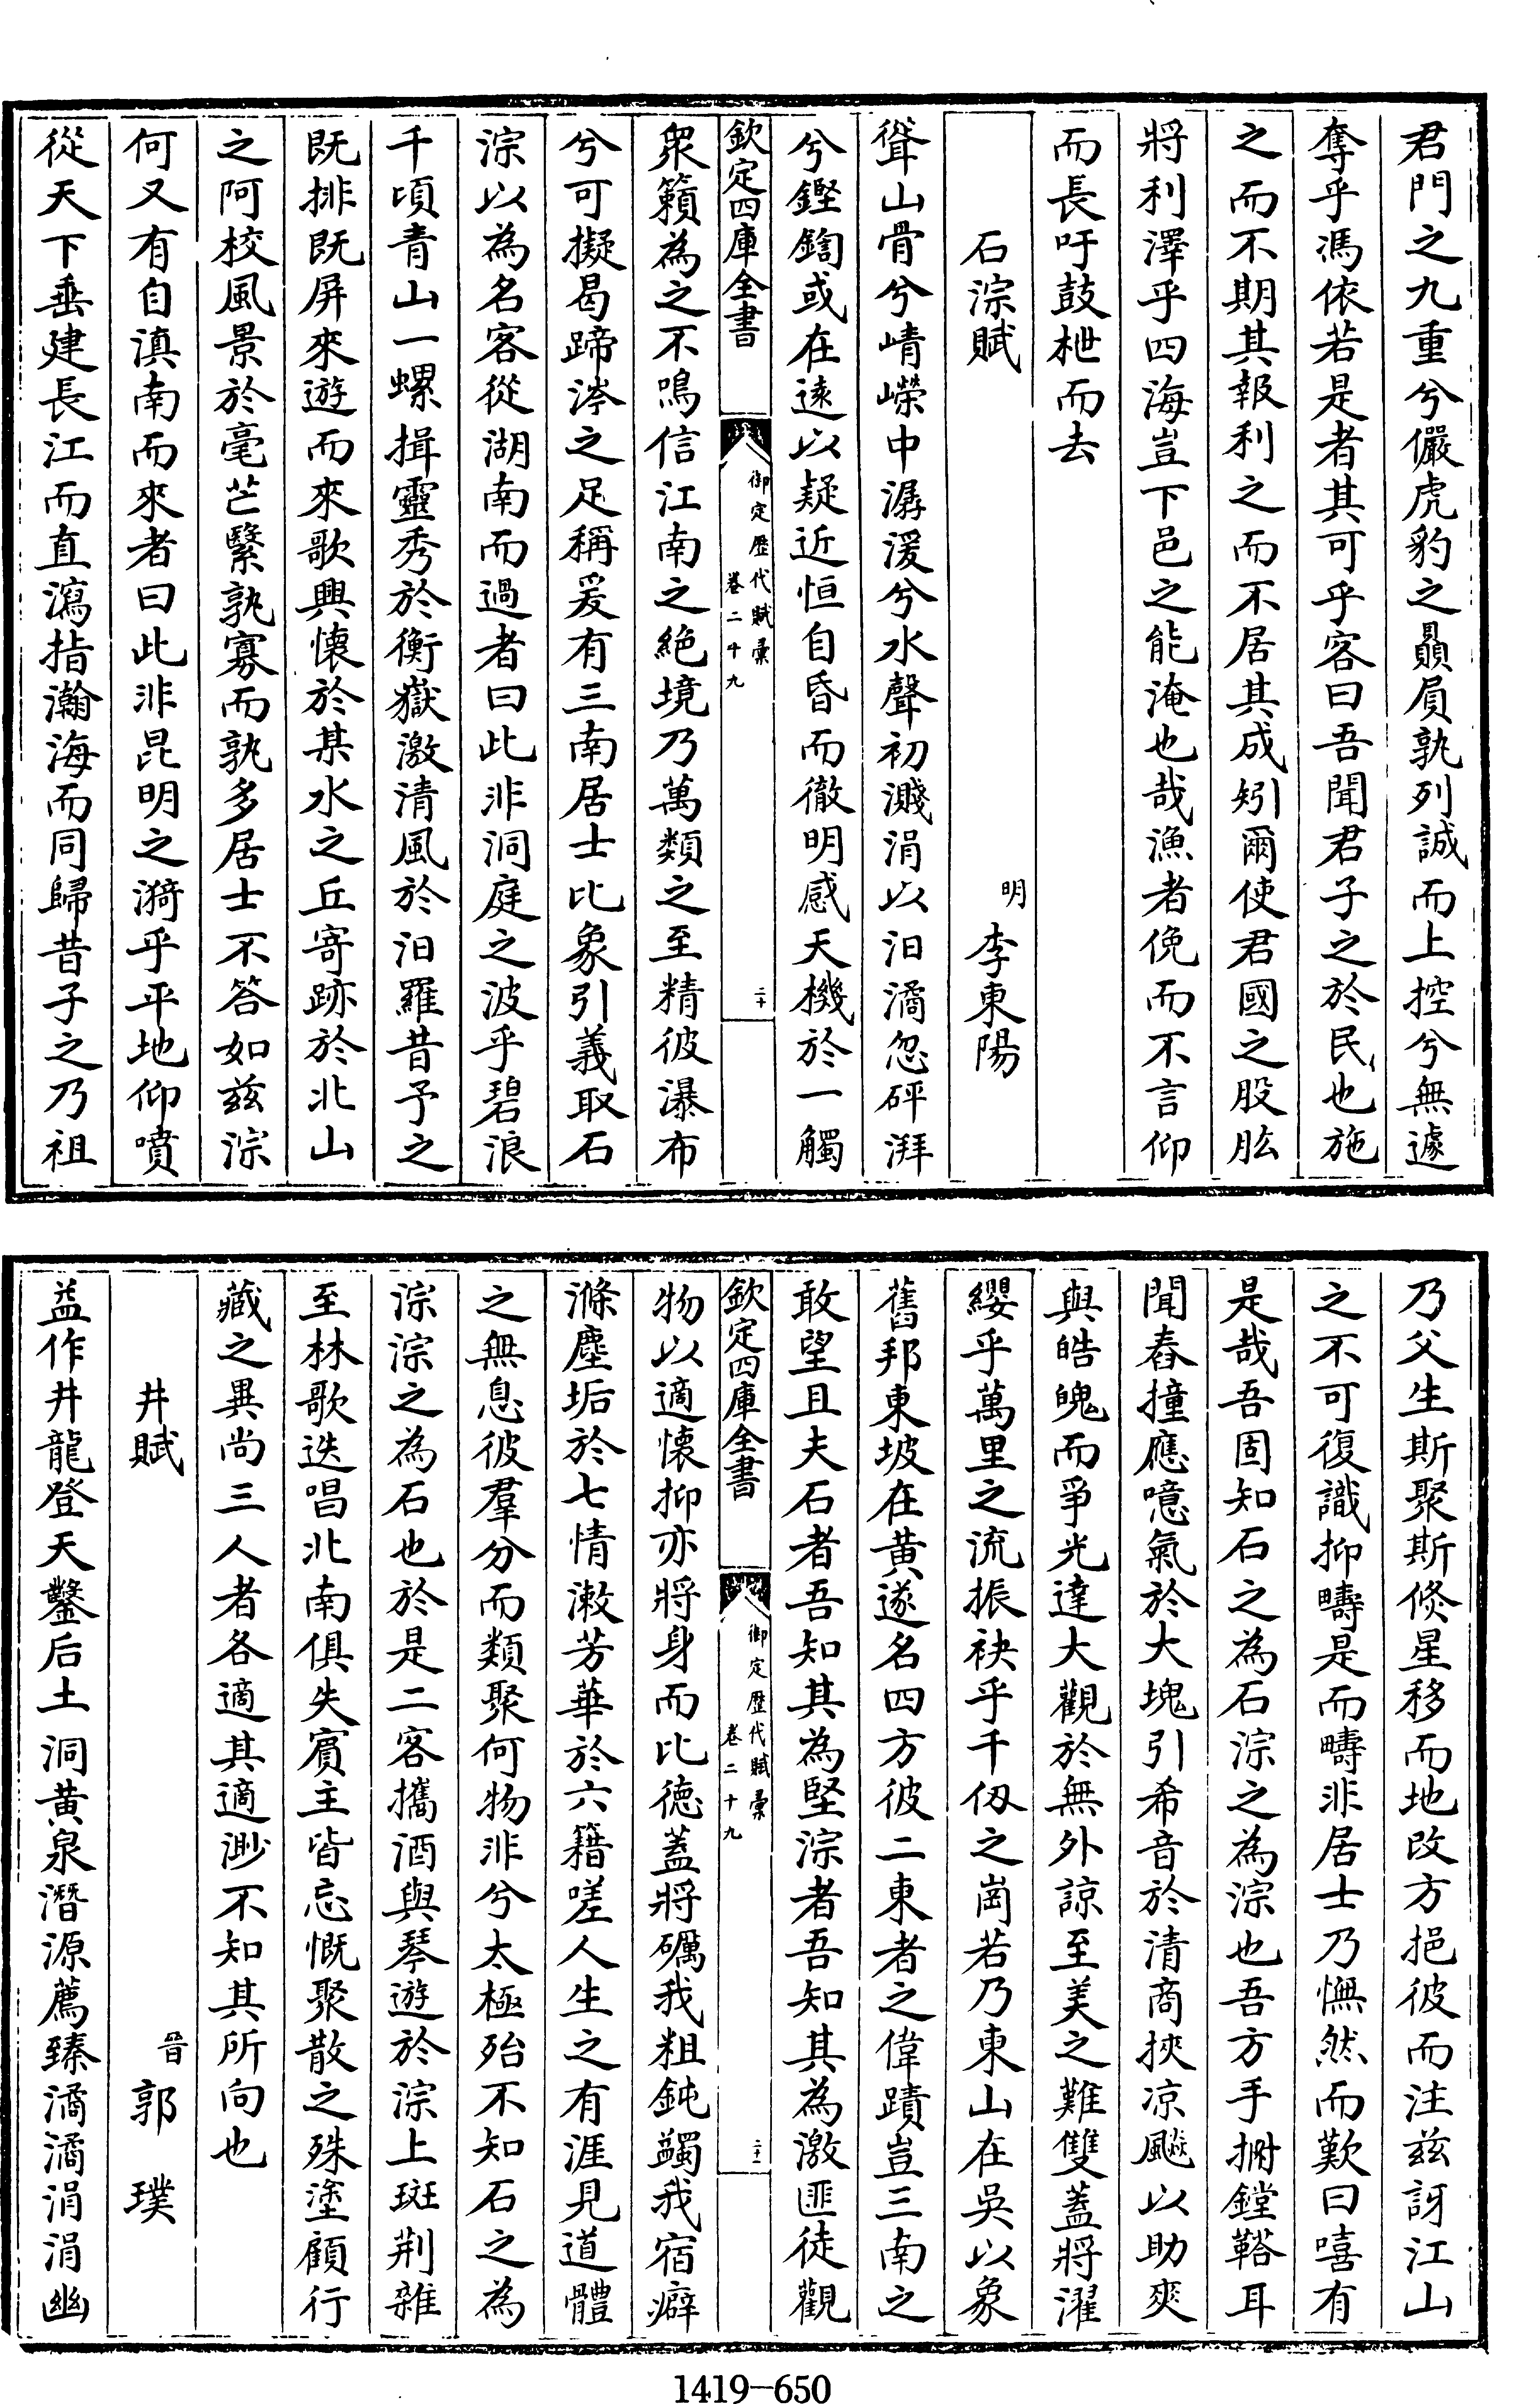 君門之九重兮儼虎豹之贔屓孰列誠而上控兮無遽
奪乎馮依若是者其可乎客曰吾聞君子之於民也施
之而不期其報利之而不居其成矧爾使君國之股肱
將利澤乎四海豈下邑之能淹也哉漁者俛而不言仰
而長吁鼓枻而去
石淙賦
明 李東陽
聳山骨兮崝嶸中潺湲兮水聲初濺涓以汩潏忽砰湃
兮鏗鍧或在遠以疑近恒自昏而徹明感天機於一觸
欽定四庫全書
御定歷代賦彙
卷二十九
二十
衆籟為之不鳴信江南之絶境乃萬類之至精彼瀑布
兮可擬曷蹄涔之足稱爰有三南居士比象引義取石
淙以為名客從湖南而過者曰此非洞庭之波乎碧浪
千頃青山一螺揖靈秀於衡嶽激清風於汨羅昔予之
既排既屏來遊而來歌興懷於某水之丘寄跡於北山
之阿校風景於毫芒繄孰寡而孰多居士不答如兹淙
何又有自滇南而來者曰此非昆明之漪乎平地仰噴
從天下垂建長江而直瀉指瀚海而同歸昔子之乃祖
乃父生斯聚斯倐星移而地改方挹彼而注兹訝江山
之不可復識抑疇是而疇非居士乃憮然而歎曰嘻有
是哉吾固知石之為石淙之為淙也吾方手拊鏜鞳耳
聞舂撞應噫氣於大塊引希音於清商挾凉飈以助爽
與皓魄而爭光達大觀於無外諒至美之難雙蓋將濯
纓乎萬里之流振袂乎千仭之崗若乃東山在吳以象
舊邦東坡在黄遂名四方彼二東者之偉蹟豈三南之
敢望且夫石者吾知其為堅淙者吾知其為激匪徒觀
欽定四庫全書
御定歷代賦彙
卷二十九
二十一
物以適懷抑亦將身而比德蓋將礪我粗鈍蠲我宿癖
滌塵垢於七情漱芳華於六籍嗟人生之有涯見道體
之無息彼羣分而類聚何物非兮太極殆不知石之為
淙淙之為石也於是二客攜酒與琴遊於淙上斑荆雜
至林歌迭唱北南俱失賓主皆忘慨聚散之殊塗顧行
藏之異尚三人者各適其適渺不知其所向也
井賦
晉 郭璞
益作井龍登天鑿后土洞黄泉潛源薦臻潏潏涓涓幽
1419-650